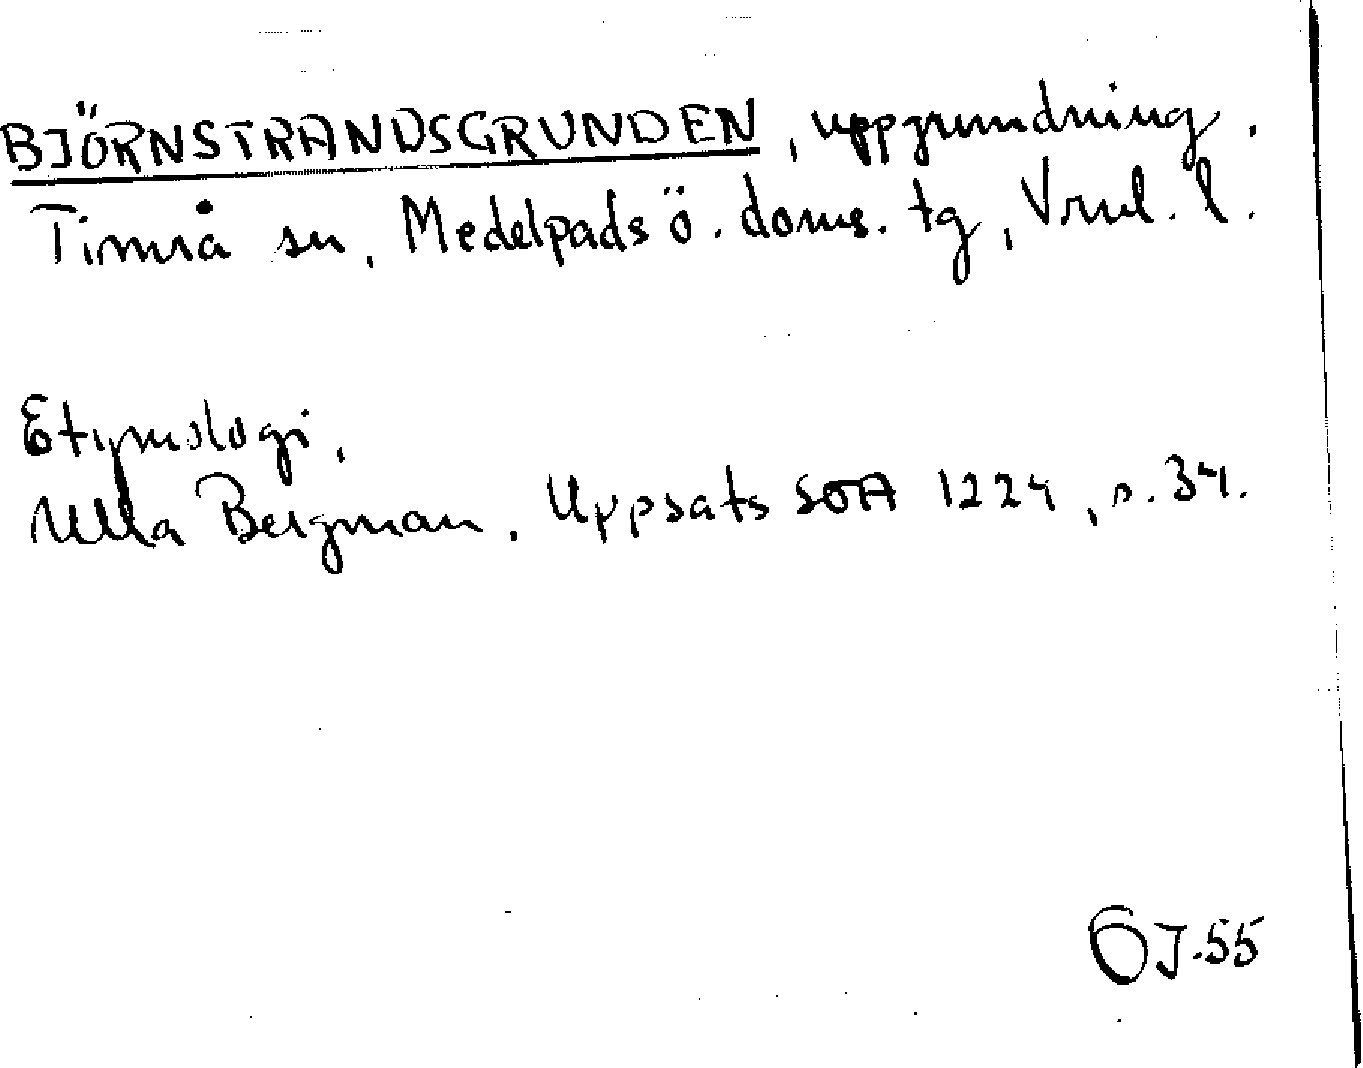 BJÖRNSTRANDSGRUNDEN, uppgrundning.
Timrå sn, Medelpads ö. doms. tg, Vrnl. l.
Etymologi,
Ulla Bergman. Uppsats SOA 1224, s. 34.
ÖJ.55